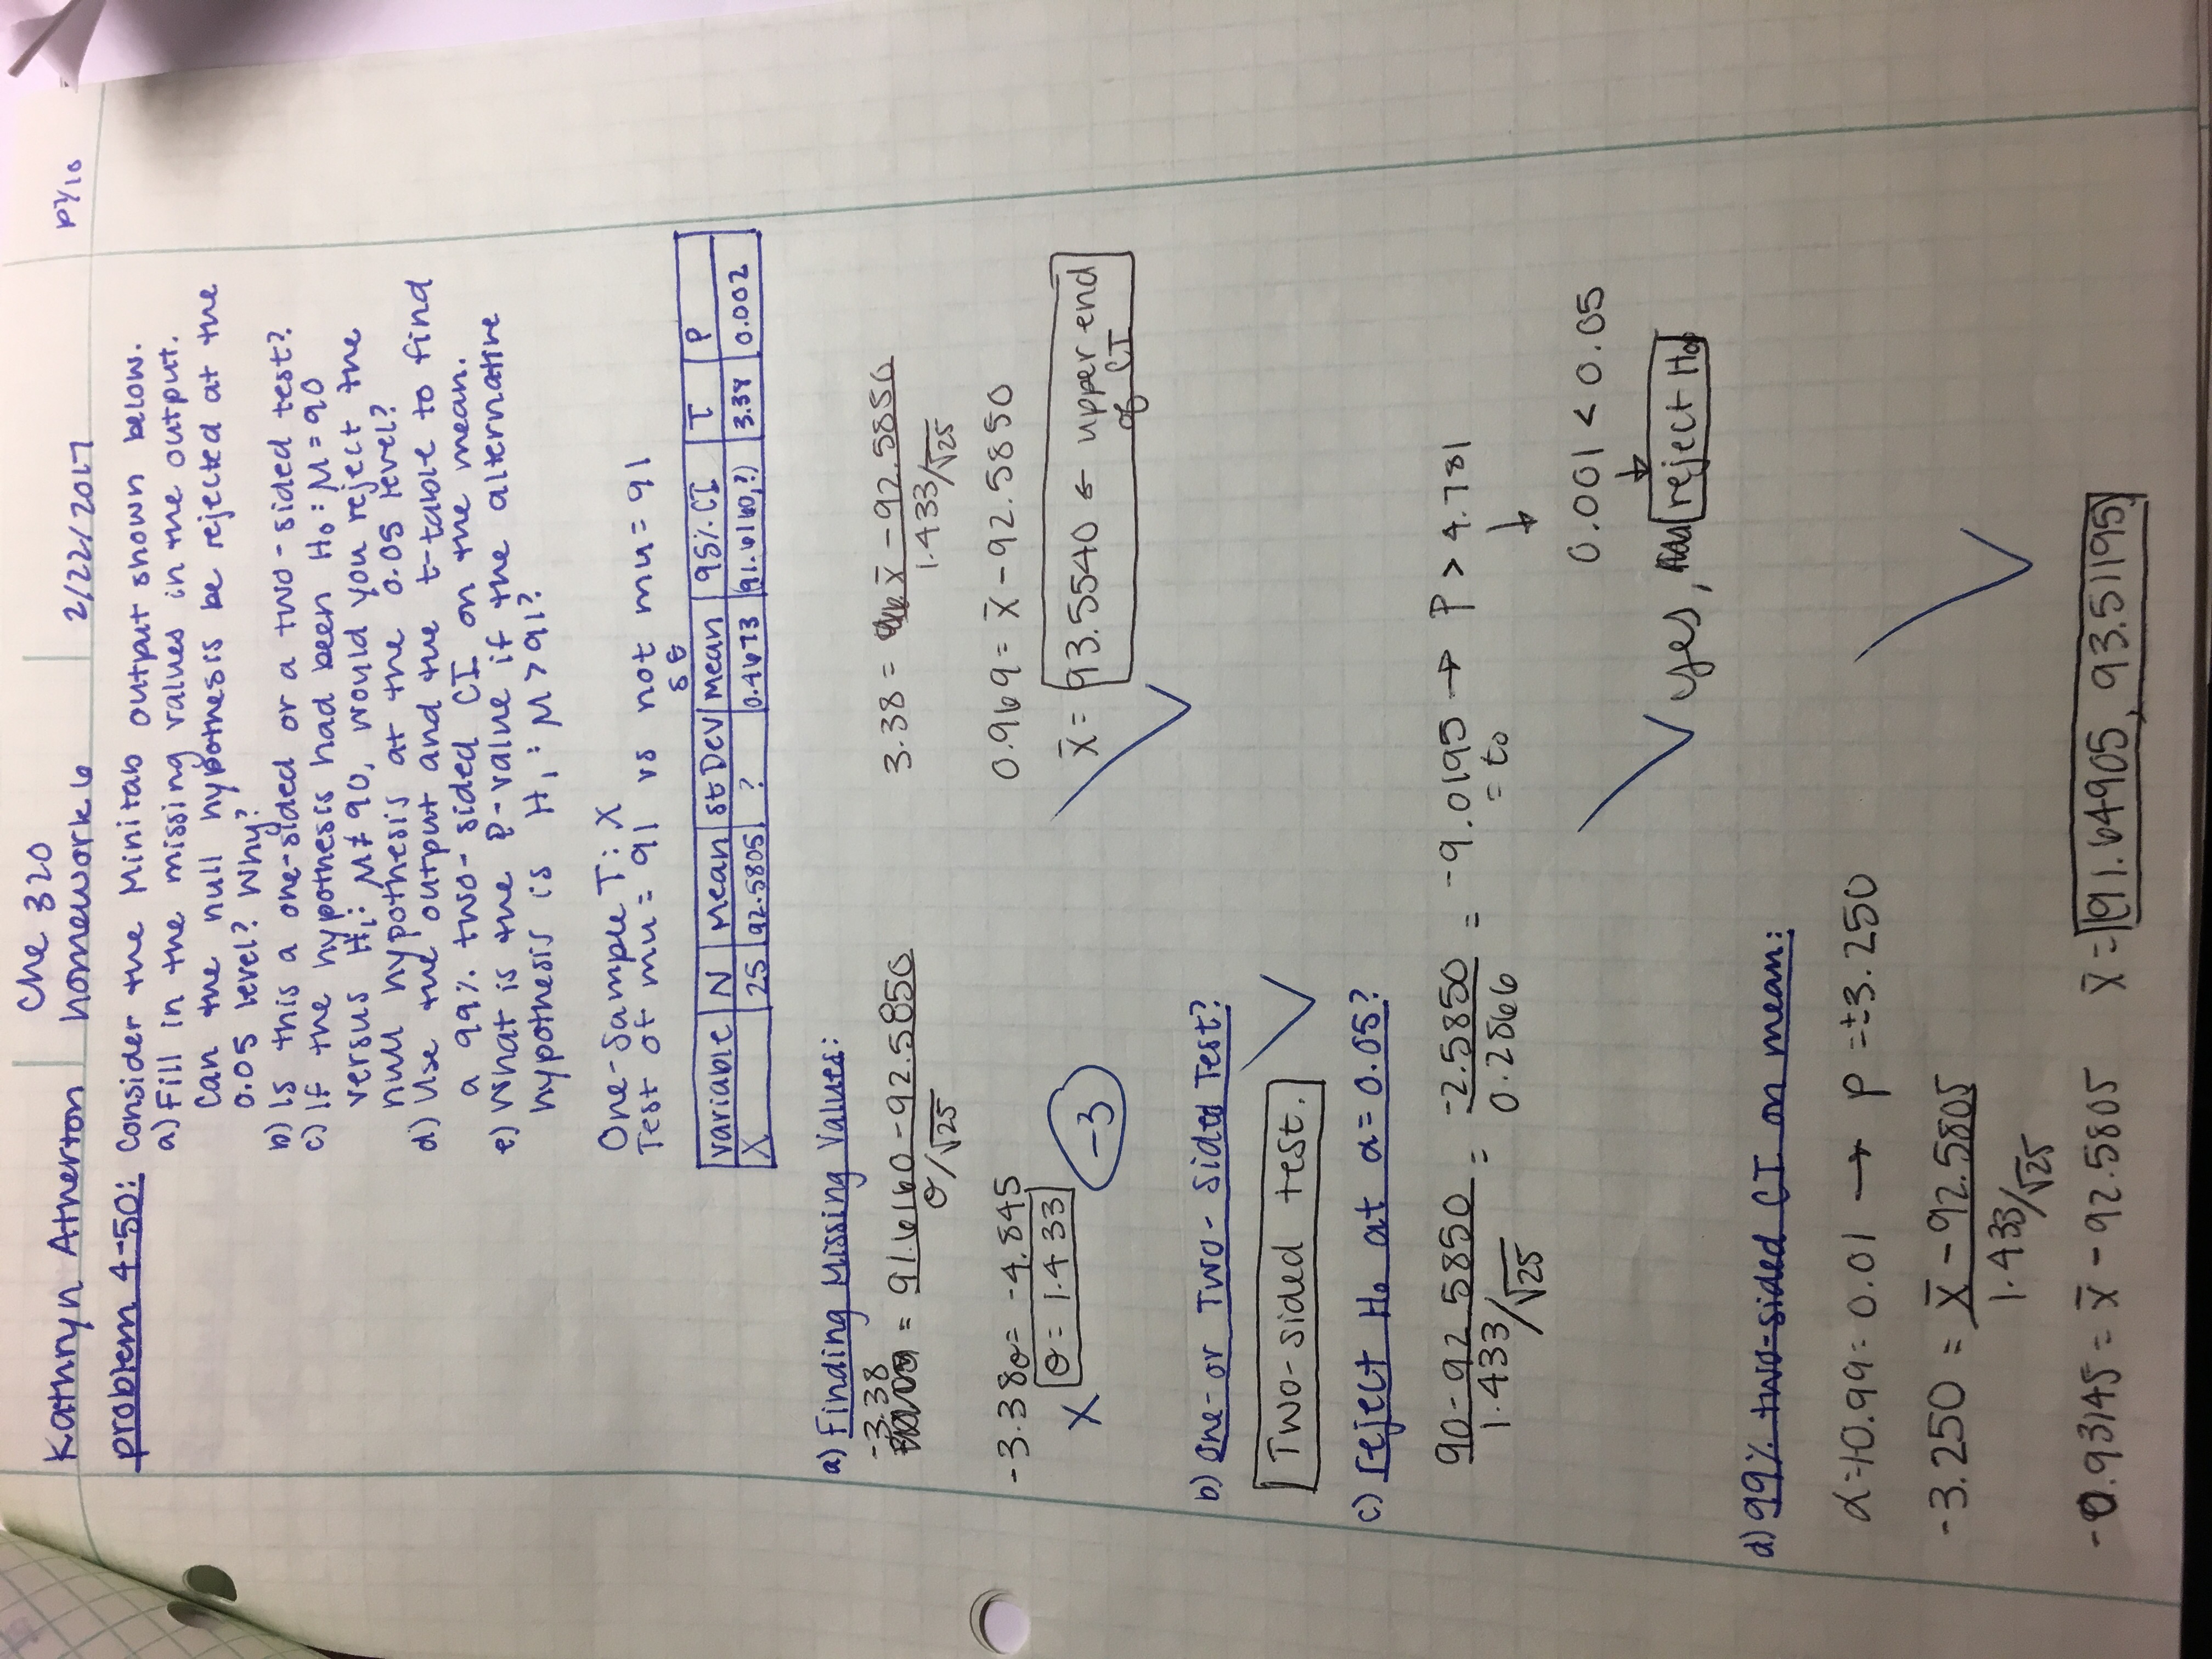 Che 320
Kathryn Atherton homework 6 2/22/2017
problem 4-50: Consider the Minitab output shown below.
a) Fill in the missing values in the output.
Can the null hypothesis be rejected at the
0.05 level? Why?
b) Is this a one-sided or a two-sided test?
c) If the hypothesis had been H₀: μ = 90
versus H₁: μ ≠ 90, would you reject the
null hypothesis at the 0.05 level?
d) Use the output and the t-table to find
a 99% two-sided CI on the mean.
e) What is the P-value if the alternative
hypothesis is H₁: μ > 91?
One-Sample T: X
Test of mu = 91 vs not mu = 91
SE
variable N Mean St Dev Mean 95% CI T P
X 25 92.5805 ? 0.4673 (91.6160, ?) 3.38 0.002
a) Finding Missing Values:
-3.38 = 91.6160 - 92.5850 3.38 = x̄ - 92.5850
σ/√25 1.433/√25
-3.38σ = -4.845 0.969 = x̄ - 92.5850
X σ = 1.433 -3 x̄ = 93.5540 ← upper end
of CI
b) One- or Two-Sided Test?
Two-sided test.
c) reject H₀ at α = 0.05?
90 - 92.5850 = -2.5850 = -9.0195 → P > 4.781
1.433/√25 0.2866 = t₀
↓
0.001 < 0.05
↓
yes, reject H₀
d) 99% two-sided CI on mean:
α = 1-0.99 = 0.01 → p = ±3.250
-3.250 = x̄ - 92.5805
1.433/√25
-0.93145 = x̄ - 92.5805 x̄ = (91.64905, 93.51195)